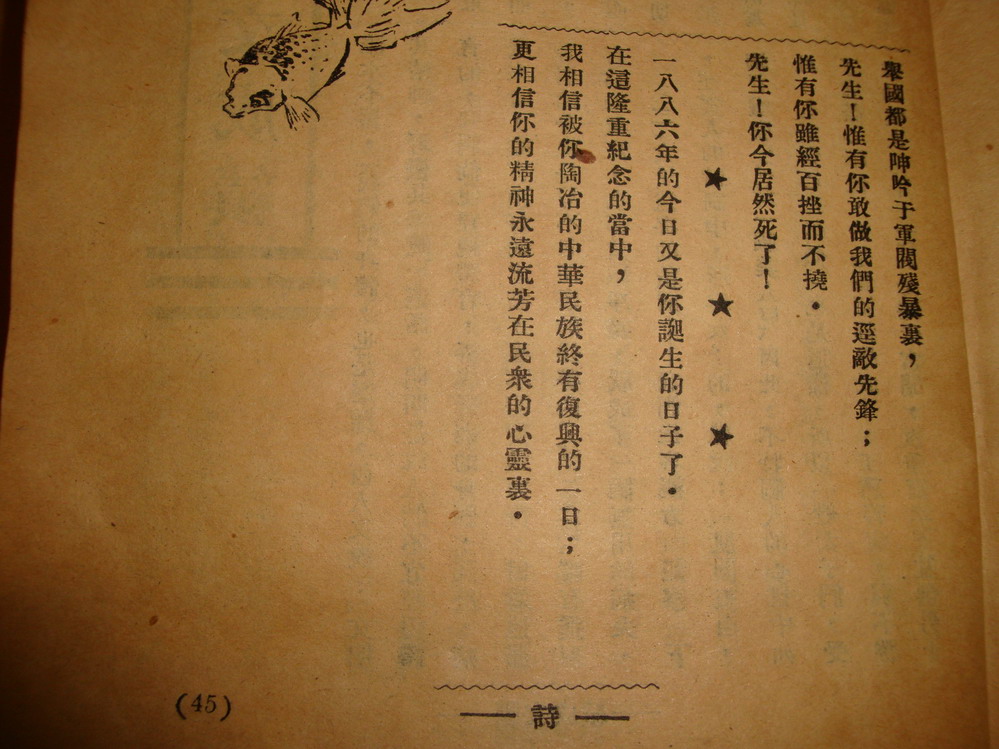 舉國都是呻吟于軍閥殘暴裏，
先生！惟有你敢做我們的逕敵先鋒；
惟有你雖經百挫而不撓．
先生！你今居然死了！
★ ★ ★
一八八六年的今日又是你誕生的日子了．
在這隆重紀念的當中，
我相信被你陶冶的中華民族終有復興的一日；
更相信你的精神永遠流芳在民衆的心靈裏．
— 詩 —
(45)